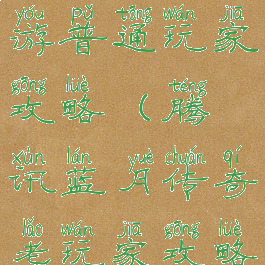 yóu pǔ tōng wán jiā
游普通玩家
gōng lüè ténɡ
攻略（腾
xùn lán yuè chuán qí
讯蓝月传奇
lǎo wán jiā gōng lüè
老玩家攻略